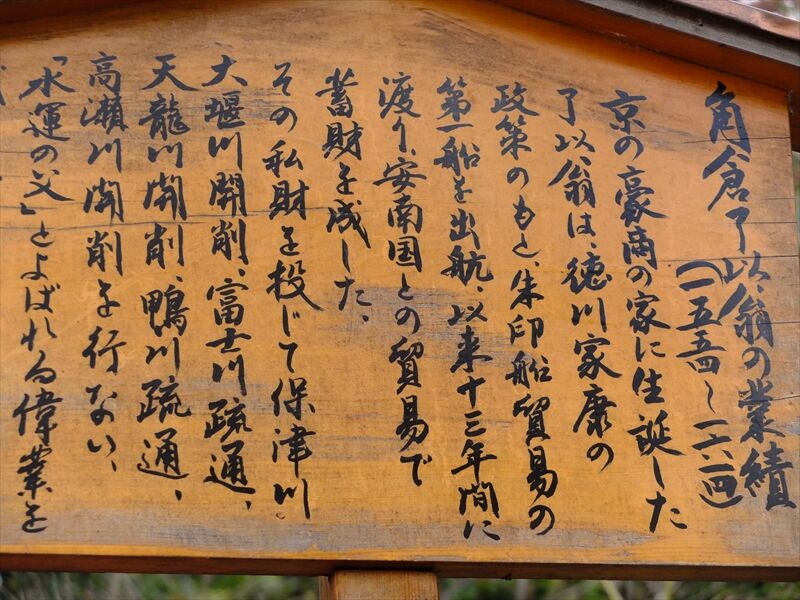 角倉了以翁の業績
(一五五四〜一六一四)
京の豪商の家に生誕した
了以翁は、徳川家康の
政策のもと、朱印船貿易の
第一船を出航、以来十三年間に
渡り、安南国との貿易で
蓄財を成した、
その私財を投じて保津川
大堰川開削、富士川疏通、
天龍川開削、鴨川疏通、
高瀬川開削を行ない、
「水運の父」とよばれる偉業を